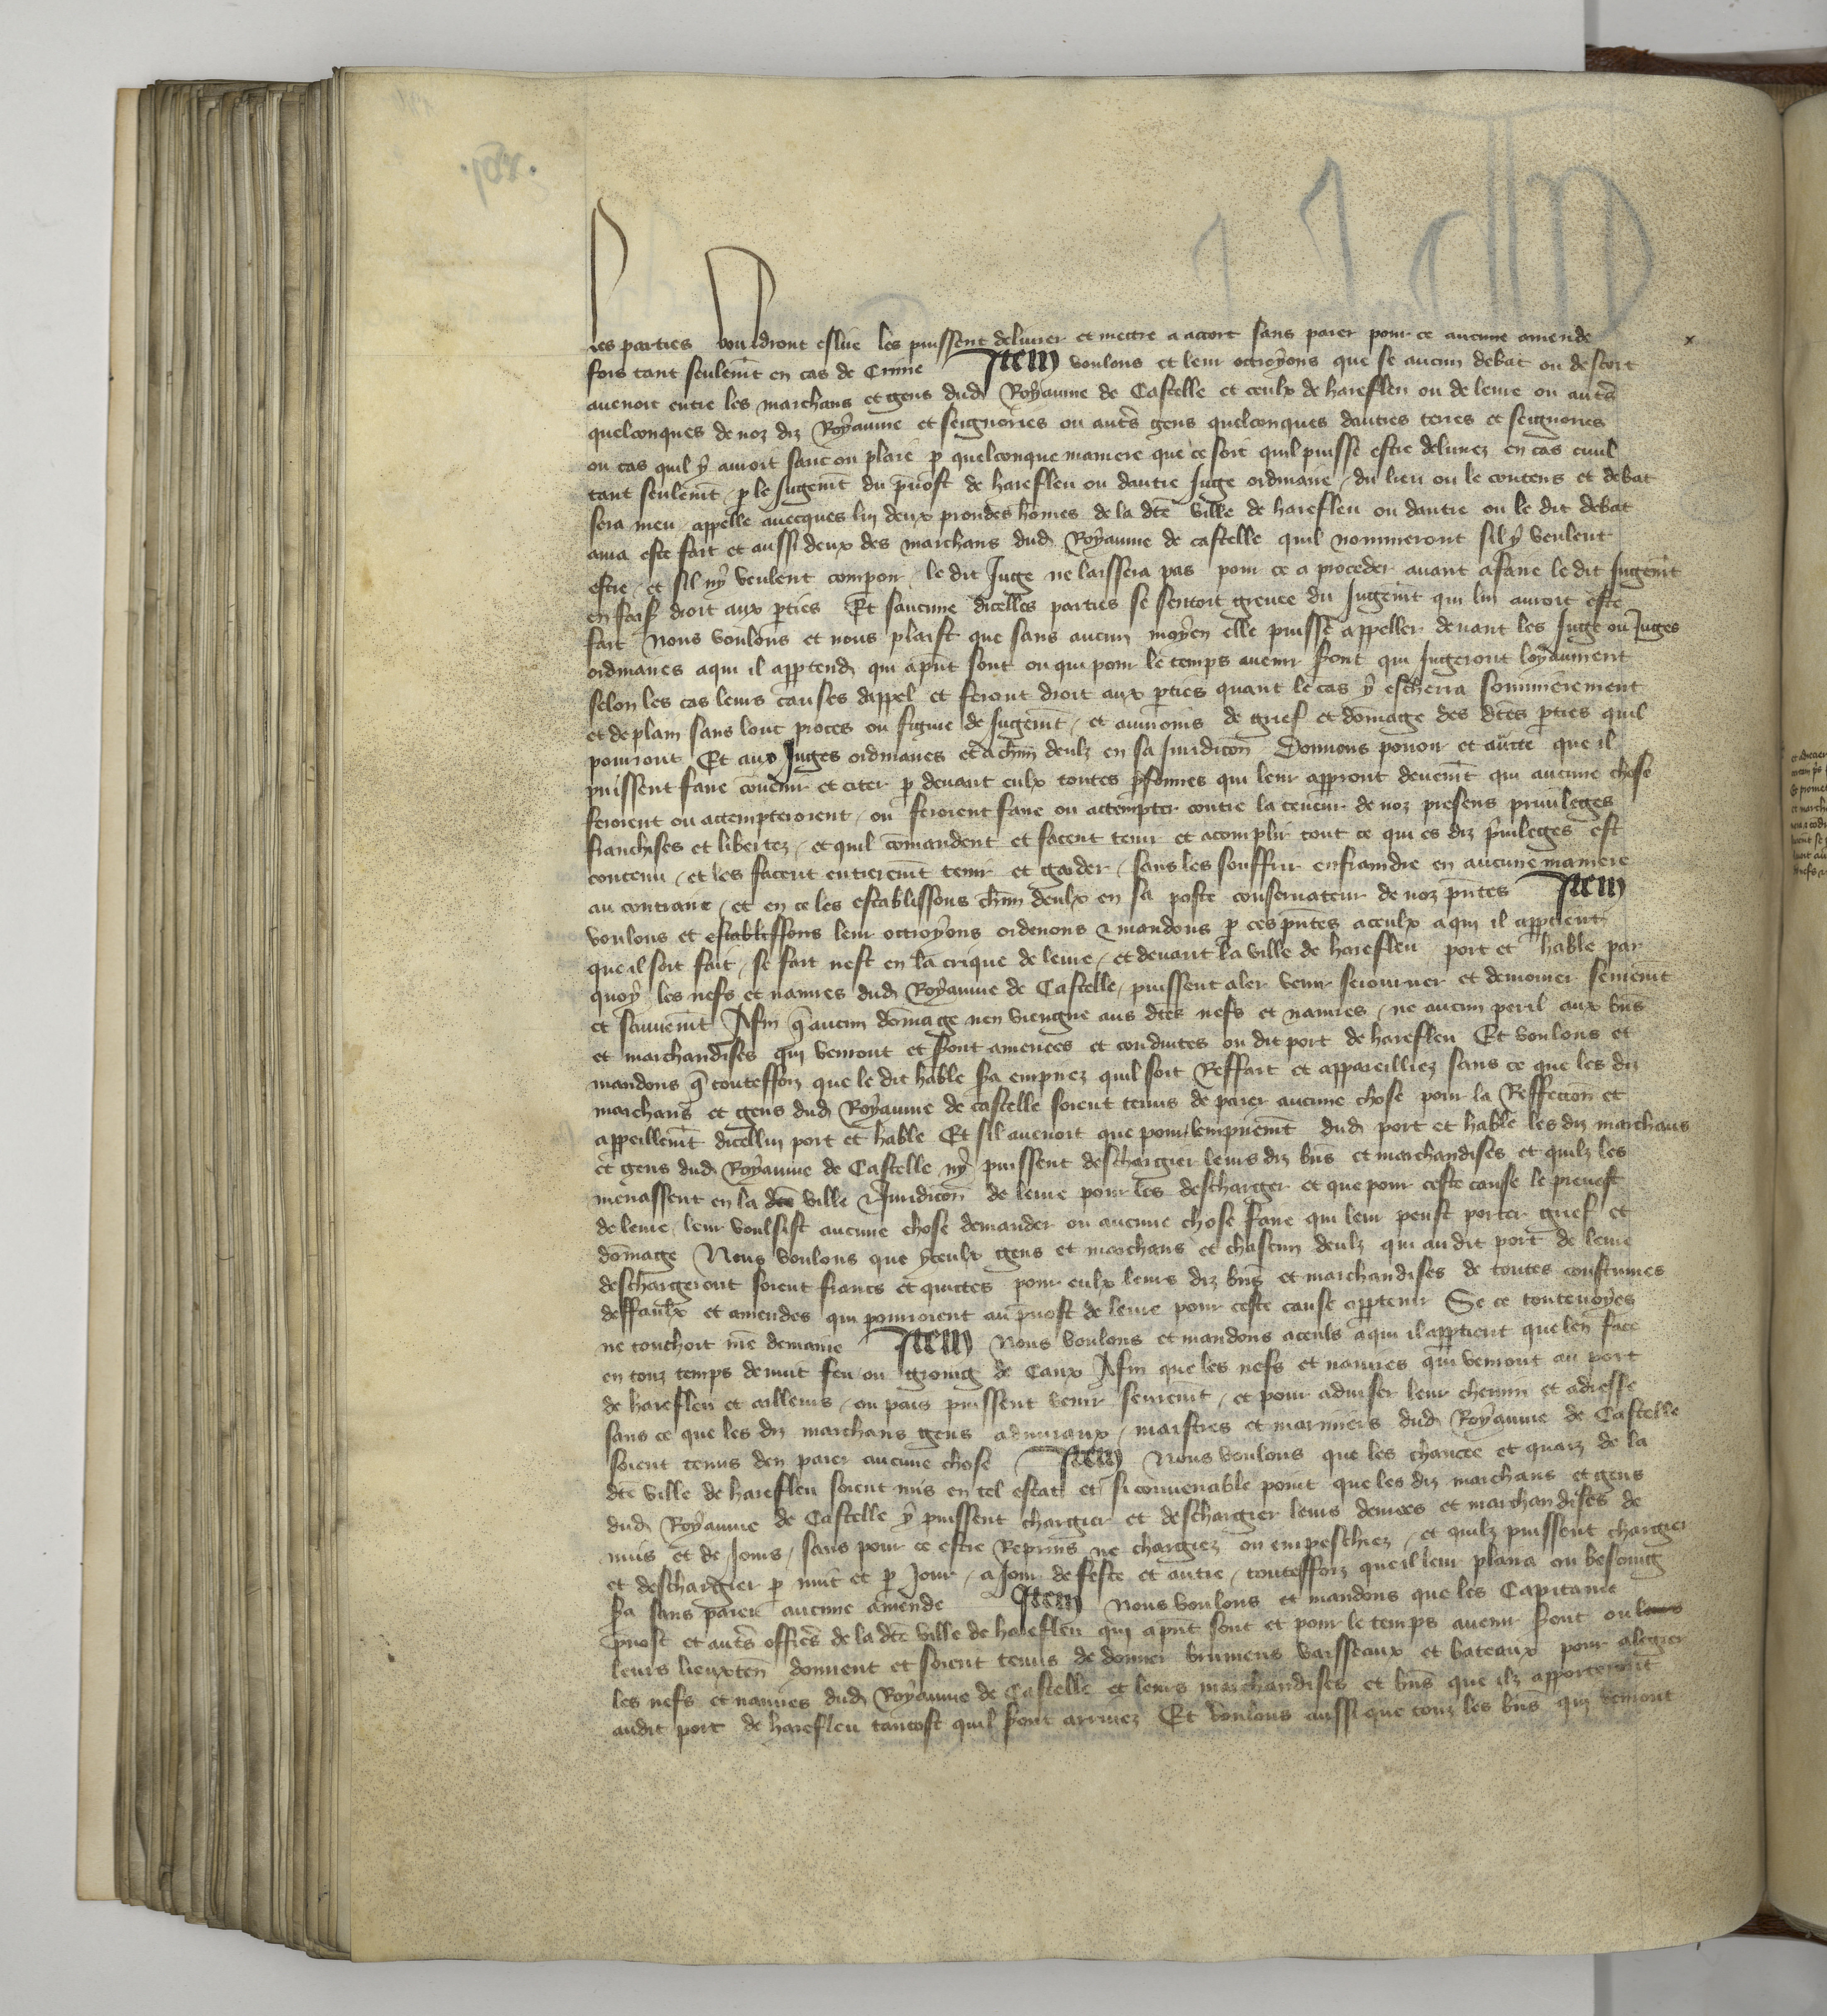 les parties voudront eslire les puissent delivrer et mettre a accort sans paier pour ce aucune amende
fors tant seulemt en cas de Crime Item voulons et leur octroyons que se aucun debat ou descort
avenoit entre les marchans et gens dud Royaume de Castelle et ceulx de harefleu ou de leure ou auts
quelconques de noz diz Royaume et seignories ou auts gens quelconques dautres terres et seignories
ou cas quil y auroit sanc ou plaie p quelconque maniere que ce soit quil puisse estre delivrez en cas civil
tant seulemt p le Jugemt du pvost de harefleu ou dautre Juge ordinaire du lieu ou le contens et debat
sera meu appelle avecques lui deux preudes homes de la dte ville de harefleu ou dautre ou le dit debat
aura este fait et aussi deux des marchans dud Royaume de castelle quil nommeront sil y veulent
estre et sil ny veulent compoir le dit Juge ne laissera pas pour ce a proceder avant a faire le dit Jugemt
en fais droit aux pties Et saucune dicelles parties se sentoit grevee du Jugemt qui lui auroit este
fait Nous voulons et nous plaist que sans aucun moyen elle puisse appeller devant les Juge ou Juges
ordinaires a qui il apptend qui apnt sont ou qui pour le temps avenir sont qui Jugeront loyaument
selon les cas leurs causes dappel et feront droit aux pties quant le cas y escherra sommierement
et de plain sans lonc proces ou figure de Jugemt et aumoins de grief et domage des dtes pties quil
pourront Et aux Juges ordinaires et a chun deulz en sa Juridicon Donnons povoir et aucte que il
puissent faire convenir et citer p devant eulx toutes psonnes qui leur appront deuemt qui aucune chose
feroient ou attempteroient ou feroient faire ou attempter contre la teneur de noz presens privileges
franchises et libertez et quil comandent et facent tenir et acomplir tout ce qui es diz privileges est
contenu et les facent entieremt tenir et garder sans les souffrir enfraindre en aucune maniere
au contraire et en ce les establissons chun deulx en sa poste conservateur de noz pntes Item
voulons et establissons leur octroyons ordenons & mandons p ces pntes a ceulx a qui il apptient
que il soit fait se fait nest en la crique de leure et devant la ville de harefleu port et hable par
quoy les nefs et navires dud Royaume de Castelle puissent aler venir seiourner et demourer seuremt
et sauvemt Afin q aucun domage nen viengne aus dtes nefs et navires ne aucun peril aux bns
et marchandises qui vendront et sont amenees et conduites ou dit port de harefleu Et voulons et
mandons q touteffoiz que le dit hable sa empirez quil soit Reffait et appareilliez sans ce que les diz
marchans et gens dud Royaume de castelle soient tenus de paier aucune chose pour la Reffection et
appeillemt dicellui port et hable Et sil avenoit que pour lempiremt dud port et hable les diz marchans
et gens dud Royaume de Castelle ny puissent deschargier leurs diz bns et marchandises et quilz les
menassent en la dte ville & Juridicon de leure pour les descharger et que pour ceste cause le prevost
de leure leur voulsist aucune chose demander ou aucune chose faire qui leur peust porter grief et
domage Nous voulons que yceulx gens et marchans et chascun deulz qui au dit port de leure
deschargeront soient frans et quittes pour eulx leurs diz bns et marchandises de toutes coustumes
deffaulx et amendes qui pourroient au pvost de leure pour ceste cause apptenir Se ce toutevoyes
ne touchoit nre demaine Item Nous voulons et mandons a ceuls a qui il apptient que len face
en touz temps de nuit feu ou groing de Caux Afin que les nefs et navires qui vendront au port
de harefleu et ailleurs ou pais puissent venir seuremt et pour adviser leur chemin et adresse
sans ce que les diz marchans gens admiraux maistres et mariniers dud Royaume de Castelle
soient tenus den paier aucune chose Item Nous voulons que les chaucee et quaiz de la
dte ville de harefleu soient mis en tel estat et si convenable point que les diz marchans et gens
dud Royaume de Castelle y puissent chargier et deschargier leurs denrees et marchandises de
nuis et de Jours sans pour ce estre Reprins ne chargiez ou empeschiez et quilz puissent chargier
et deschargier p nuit et p Jour a Jour de feste et autre touteffoiz que il leur plaira ou besoing
sa sans paier aucune amende Item Nous voulons et mandons que les Capitaine
pvost et auts offics de la dte ville de harefleu qui apnt sont et pour le temps avenir sont ou leurs
leurs lieuxten donnent et soient tenus de donner brumens vaisseaux et bateaux pour alegier
les nefs et navires dud Royaume de Castelle et leurs marchandises et bns que ilz apporteront
audit port de harefleu tantost quil sont arrivez Et voulons aussi que touz les bns qui vendront